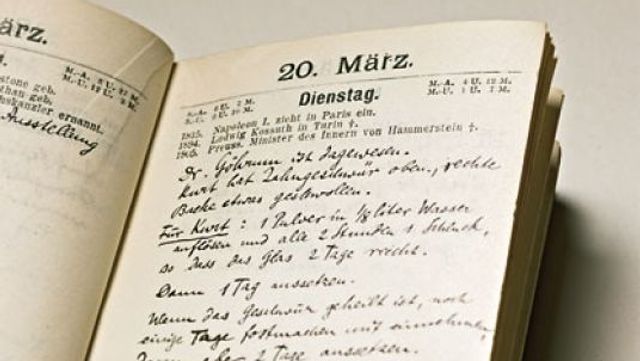 ärz.
stone geb.
than geb.
skanzler ernannt.
Ausstellung
20. März.
Dienstag.
M.-A.
M.-U.
1815. Napoleon I. zieht in Paris ein.
1894. Ludwig Kossuth in Turin †.
1905. Preuss. Minister des Innern von Hammerstein †.
Dr. ist dagewesen.
Kurt hat Zahngeschwür oben, rechte
Backe etwas geschwollen.
Für Kurt: 1 Pulver in 1/8 liter Wasser
auflösen und alle 2 Stunden 1 Schluck,
so dass das Glas 2 Tage reicht.
Dann 1 Tag aussetzen.
Wenn das Geschwür geheilt ist, noch
einige Tage fortmachen mit einnehmen,
aber 2 Tage aussetzen.